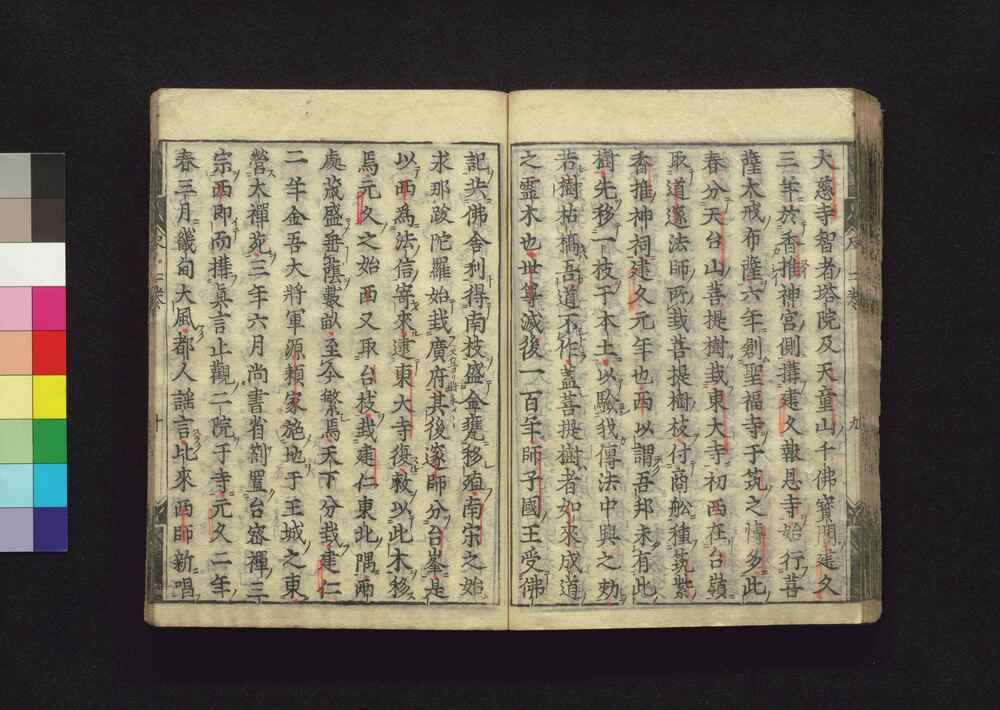 大慈寺智者塔院及天童山千佛寶閣建久
三年於香椎神宮側搆建久報恩寺始行菩
薩大戒布薩六年剏聖福寺于筑之博多此
春分天台山菩提樹栽東大寺初西在台嶺
取道邃法師所栽菩提樹枝付商舩種筑紫
香椎神祠建久元年也西以謂吾邦未有此
樹先移一枝于本土以驗我傳法中興之効
若樹枯槁吾道不作盖菩提樹者如來成道
之靈木也世尊滅後一百年師子國王受佛
記共佛舍利得南枝盛金甕移殖南宋之始
求那跋陀羅始栽廣府其後邃師分台峯是
以西為法信寄來逮東大寺復敕以此木移
焉元久之始西又取台枝栽建仁東北隅兩
處茂盛垂蔭數畝至今繁焉天下分栽建仁
二年金吾大將軍源頼家施地于王城之東
營大禪苑三年六月尚書省劄置台密禪三
宗西即而搆真言止觀二院于寺元久二年
春三月畿甸大風都人謡言比來西師新唱
九
十